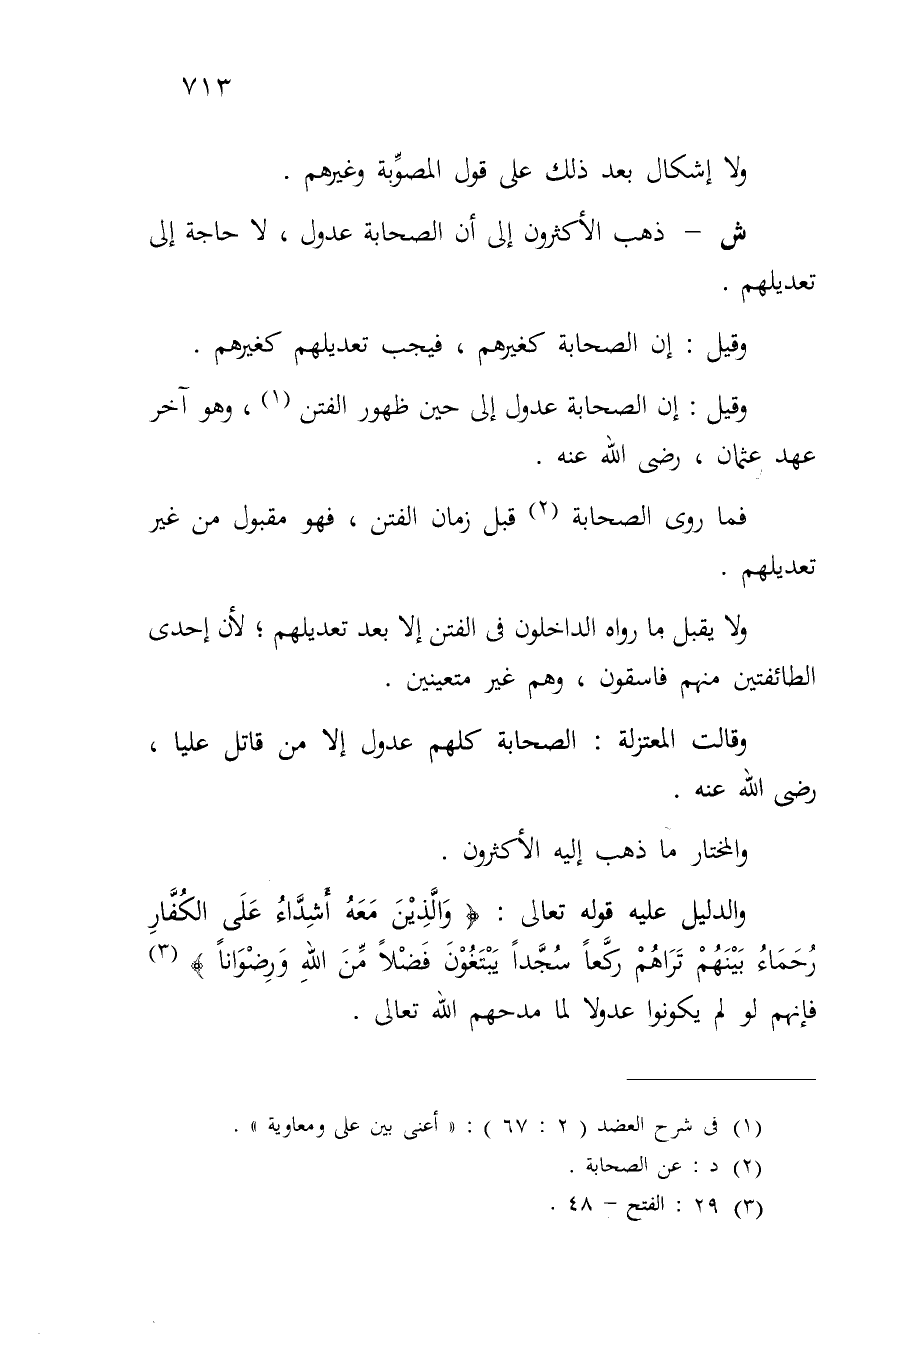 ٧١٣
ولا إشكال بعد ذلك على قول المصوِّبة وغيرهم .
ش – ذهب الأكثرون إلى أن الصحابة عدول ، لا حاجة إلى
تعديلهم .
وقيل : إن الصحابة كغيرهم ، فيجب تعديلهم كغيرهم .
وقيل : إن الصحابة عدول إلى حين ظهور الفتن (١) ، وهو آخر
عهد عثمان ، رضى الله عنه .
فما روى الصحابة (٢) قبل زمان الفتن ، فهو مقبول من غير
تعديلهم .
ولا يقبل ما رواه الداخلون فى الفتن إلا بعد تعديلهم ؛ لأن إحدى
الطائفتين منهم فاسقون ، وهم غير متعينين .
وقالت المعتزلة : الصحابة كلهم عدول إلا من قاتل عليا ،
رضى الله عنه .
والمختار ما ذهب إليه الأكثرون .
والدليل عليه قوله تعالى : ﴿ وَالَّذِيْنَ مَعَهُ أَشِدَّاءُ عَلَى الكُفَّارِ
رُحَمَاءُ بَيْنَهُمْ تَرَاهُمْ رُكَّعاً سُجَّداً يَبْتَغُوْنَ فَضْلاً مِّنَ اللهِ وَرِضْوَاناً ﴾ (٣)
فإنهم لو لم يكونوا عدولا لما مدحهم الله تعالى .
(١) فى شرح العضد ( ٢ : ٦٧ ) : « أعنى بين على ومعاوية » .
(٢) د : عن الصحابة .
(٣) ٢٩ : الفتح – ٤٨ .